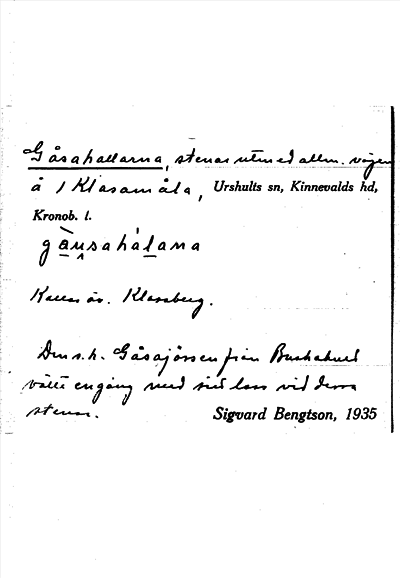 Gåsahallarna, stenar utmed allm. vägen
å /Klasamåla, Urshults sn, Kinnevalds hd,
Kronob. l.
gånsahálana
Kallas äv. Klassberg.
Den s.k. Gåsajössen från Buskahult
välte en gång med sitt lass vid dessa
stenar. Sigvard Bengtson, 1935